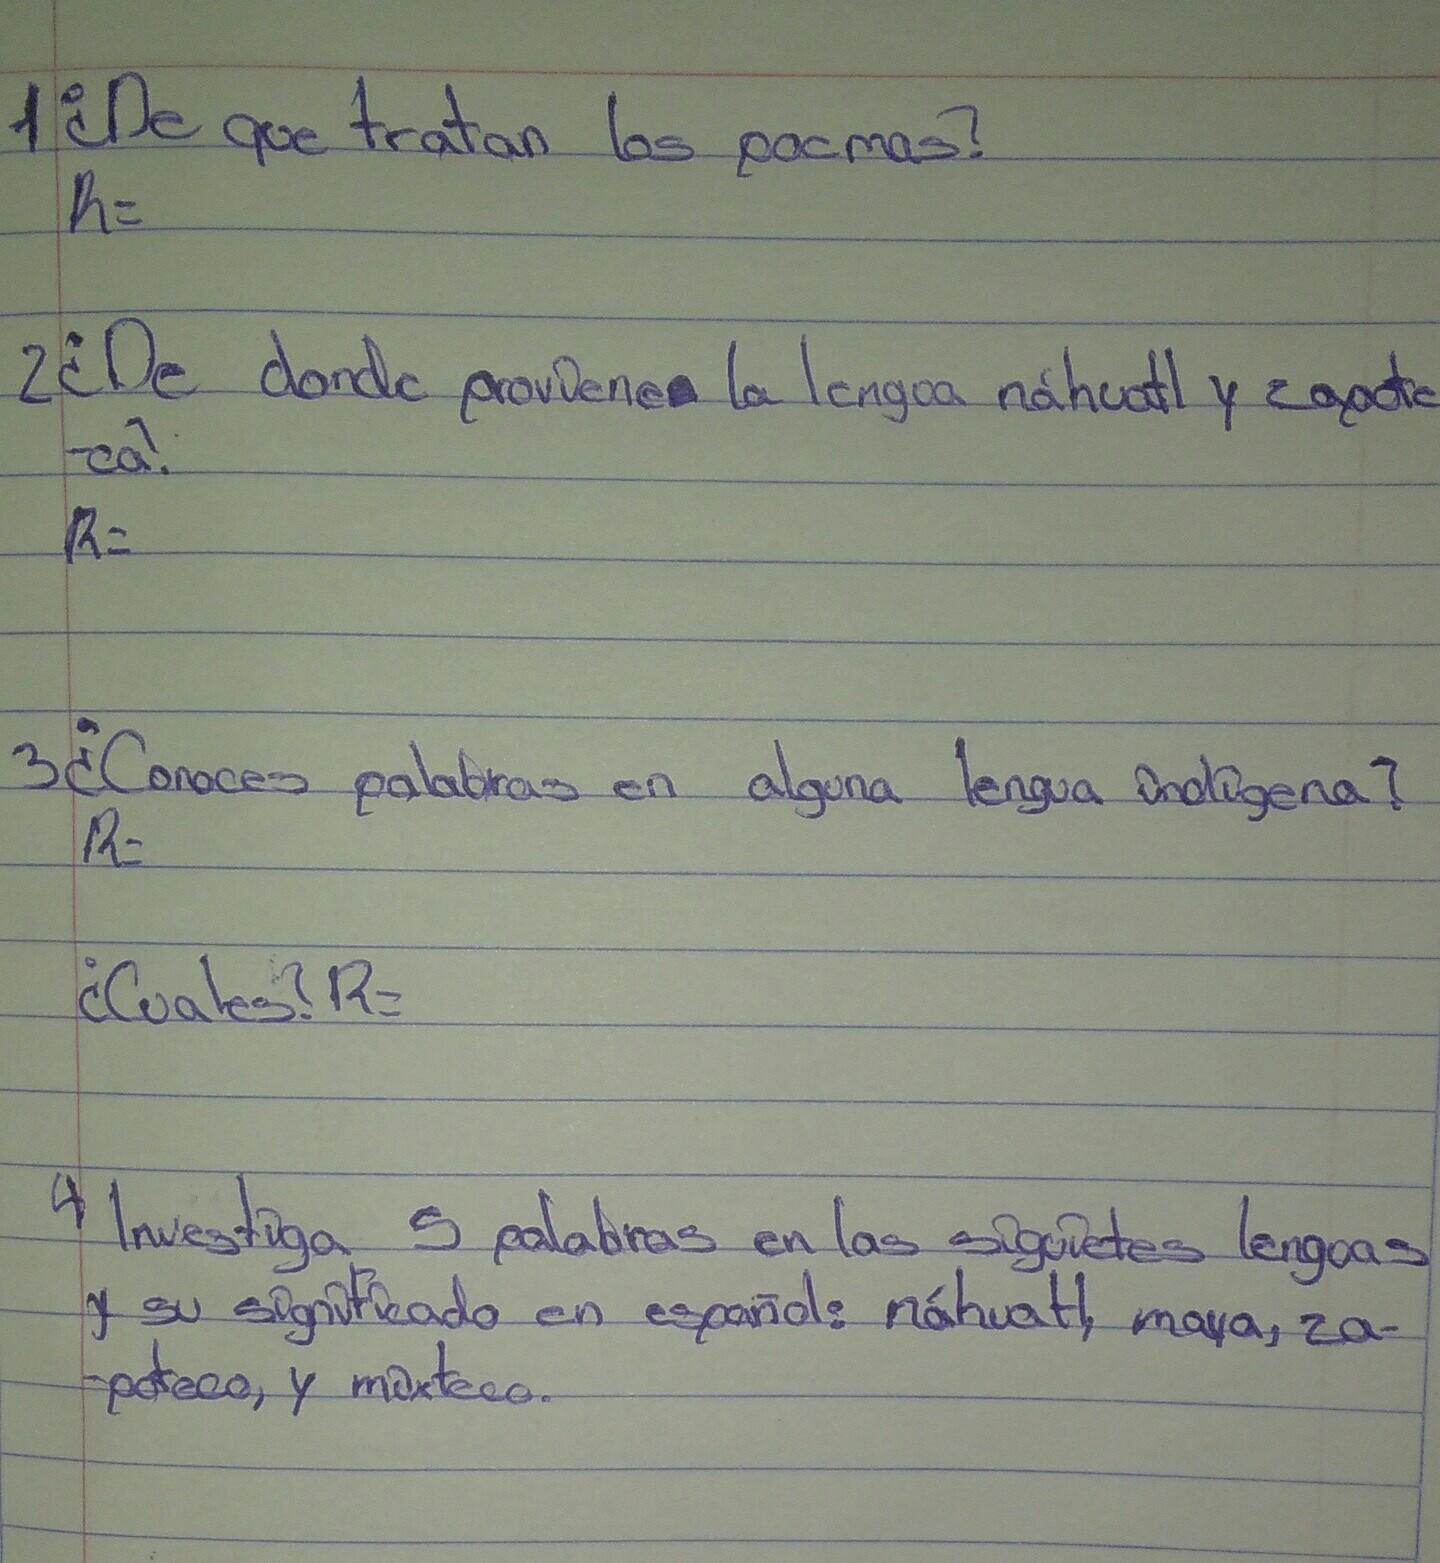 1 ¿De que tratan los poemas?
R=
2 ¿De donde proviene la lengua náhuatl y zapote
-ca?
R=
3 ¿Conoces palabras en alguna lengua indígena?
R=
¿Cuales? R=
4 Investiga 5 palabras en las siguietes lenguas
y su significado en español: náhuatl, maya, za-
-poteco, y mixteco.